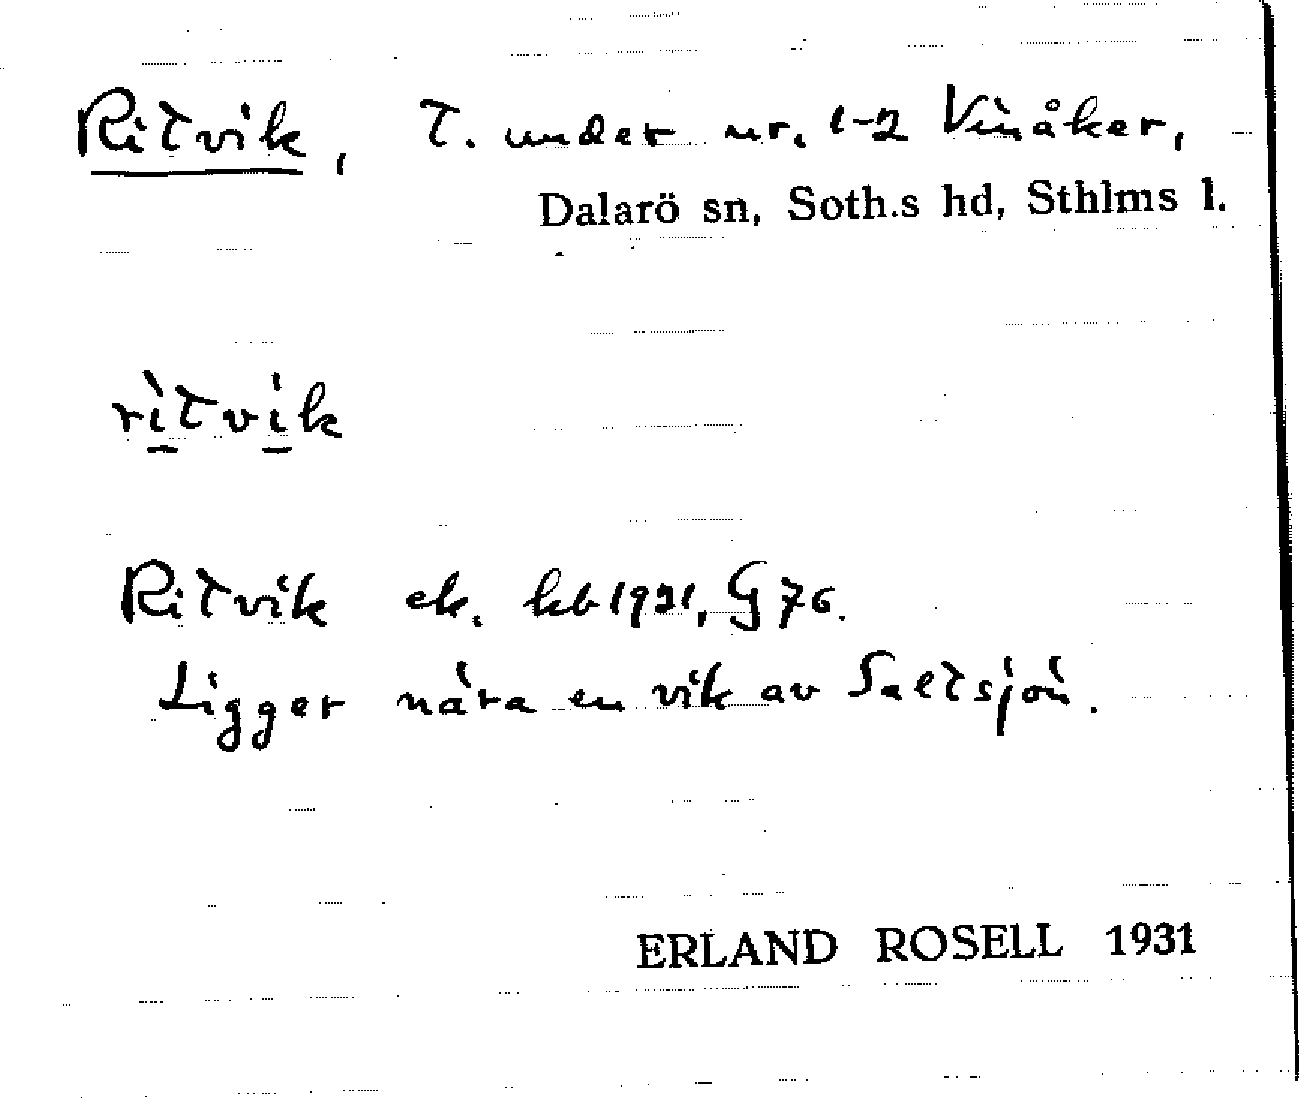 Ritvik, T. under nr. 1-2 Vinåker,
Dalarö sn, Soth.s hd, Sthlms l.
rìtvik
Ritvik ek. kb 1921, G 76.
Ligger nära en vik av Saltsjön.
ERLAND ROSELL 1931